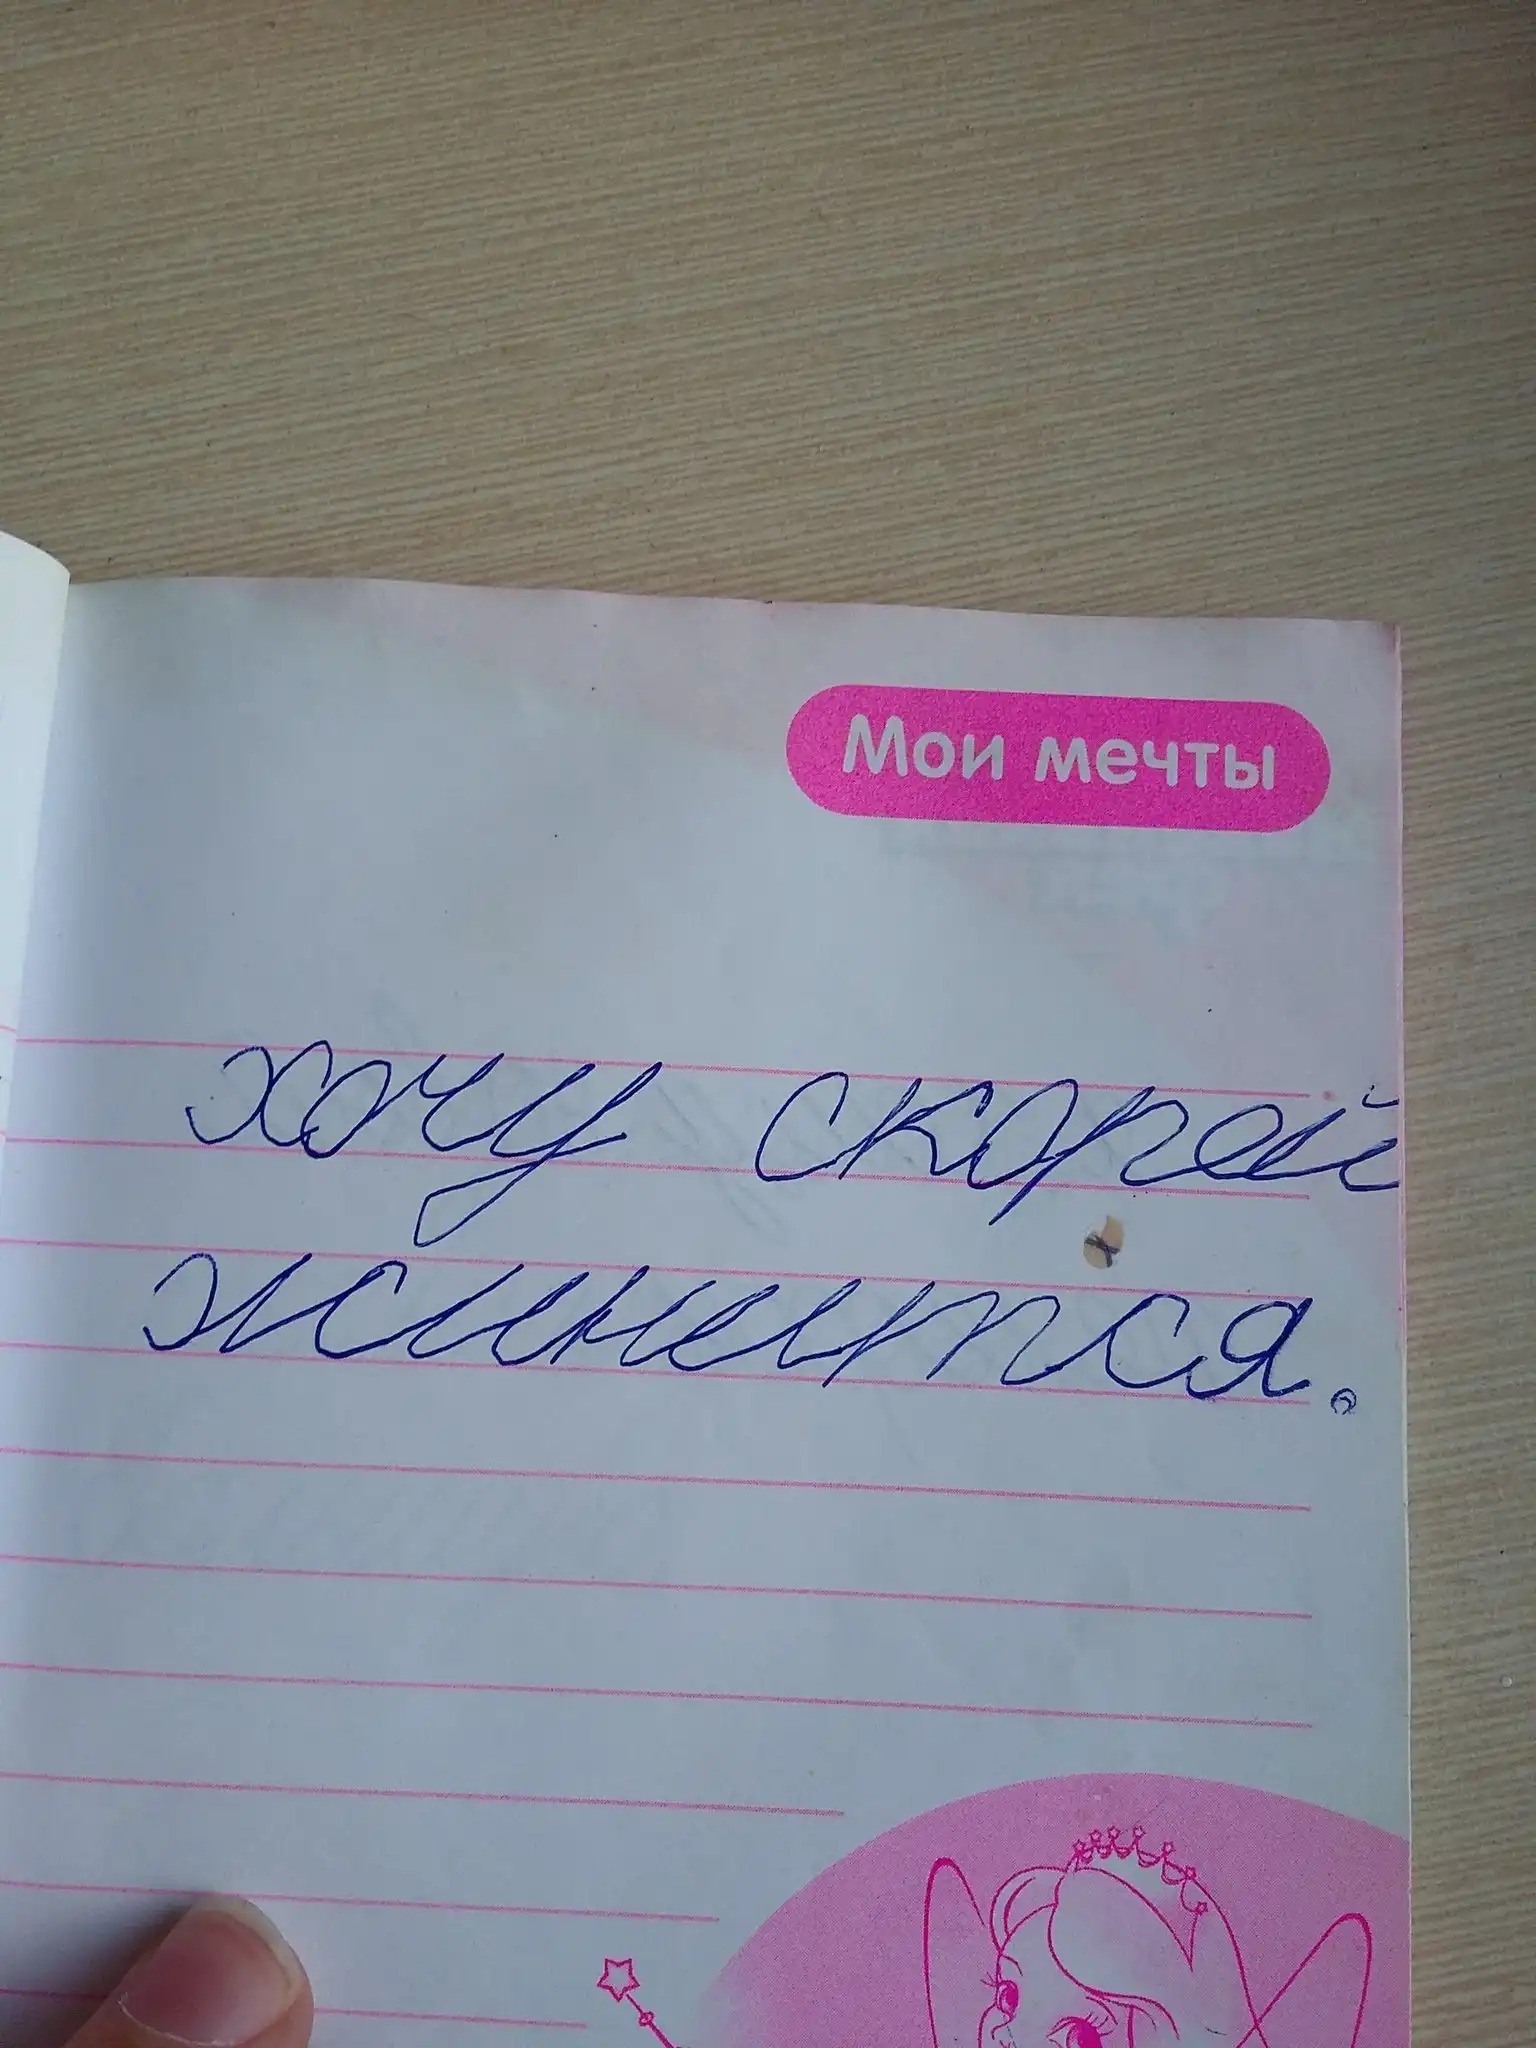 Мои мечты
хочу скорей
жинится.